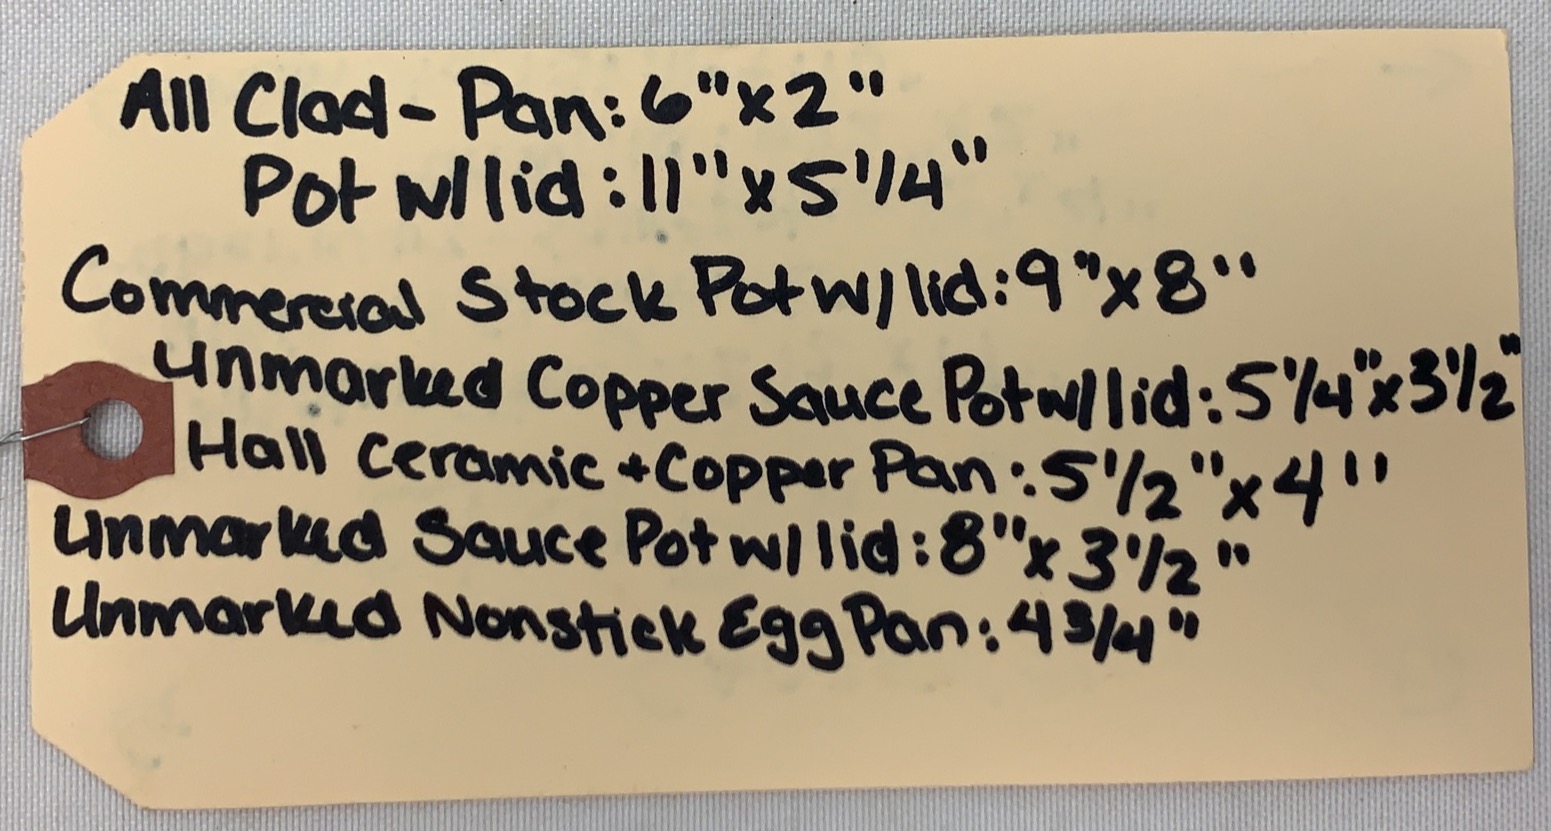 All Clad - Pan: 6" x 2"
Pot w/ lid: 11" x 5 1/4"
Commercial Stock Pot w/ lid: 9" x 8"
Unmarked Copper Sauce Pot w/ lid: 5 1/4" x 3 1/2"
Hall Ceramic + Copper Pan: 5 1/2" x 4"
Unmarked Sauce Pot w/ lid: 8" x 3 1/2"
Unmarked Nonstick Egg Pan: 4 3/4"